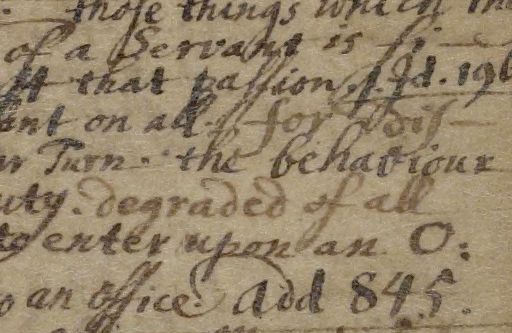 those things which
of a Servant is fi-
that passion. s. Id. 196
ant on all. for Dis-
Turn. the behaviour
uty. degraded of all
to enter upon an O:
o an office. Add 845.